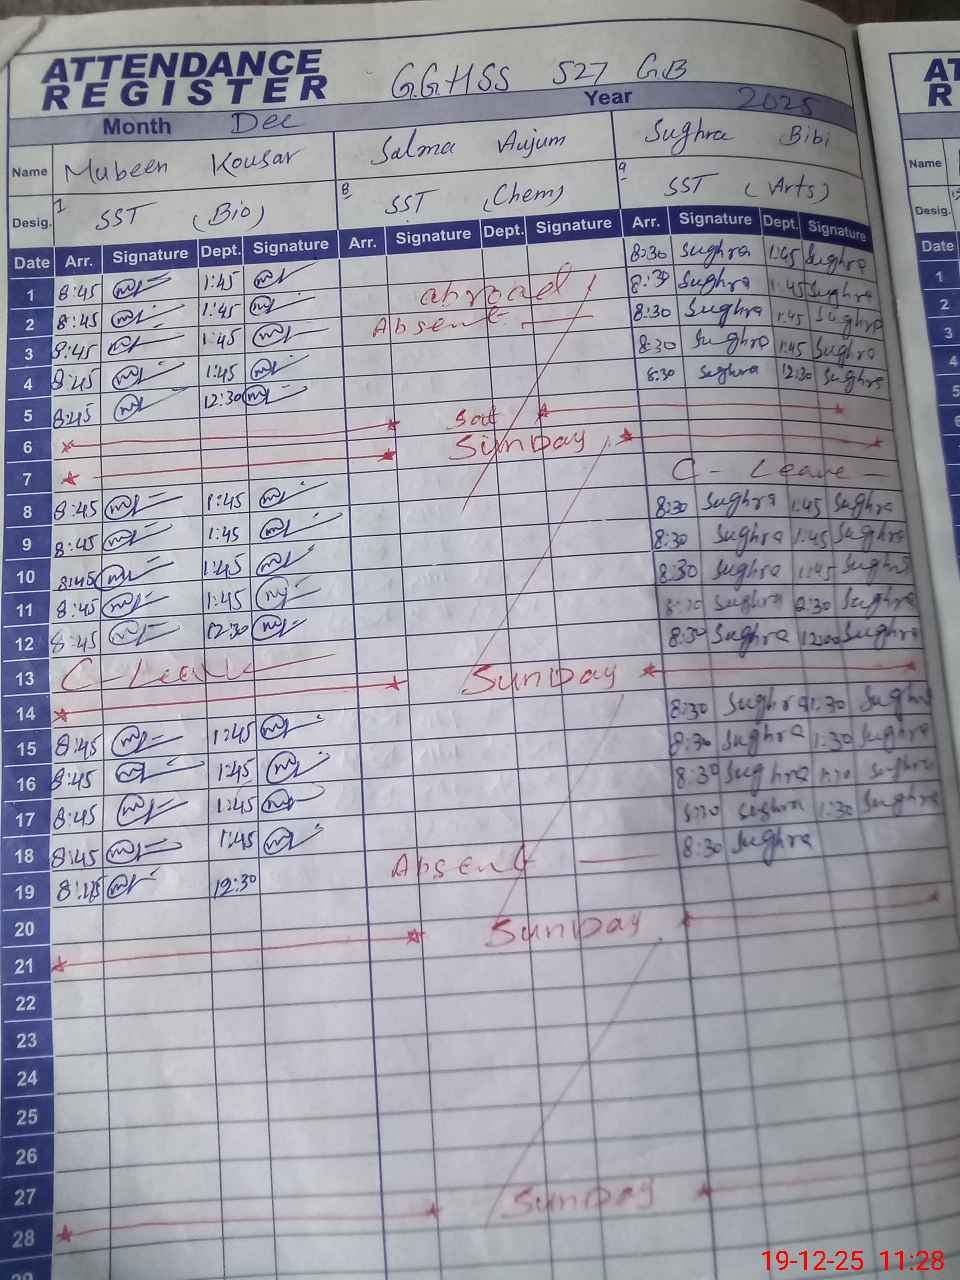 ATTENDANCE REGISTER G.G.H.S.S 527 G.B
Month Dec Year 2025
Name Mubeen Kousar Salma Anjum Sughra Bibi
Desig. 7 SST (Bio) 8 SST (Chem) 9 SST (Arts)
Date Arr. Signature Dept. Signature Arr. Signature Dept. Signature Arr. Signature Dept. Signature
1 8:45 1:45 8:30 Sughra 1:45 Sughra
2 8:45 1:45 abroad 8:30 Sughra 1:45 Sughra
3 8:45 1:45 Absent 8:30 Sughra 1:45 Sughra
4 8:45 1:45 8:30 Sughra 1:45 Sughra
5 8:45 12:30 8:30 Sughra 12:30 Sughra
6 Sat
7 Sunday
8 8:45 1:45 C-Leave
9 8:45 1:45 8:30 Sughra 1:45 Sughra
10 8:45 1:45 8:30 Sughra 1:45 Sughra
11 8:45 1:45 8:30 Sughra 1:45 Sughra
12 8:45 12:30 Sughra 12:30 Sughra
13 C-Leave 8:30 Sughra 12:00 Sughra
14 Sunday
15 8:45 1:45 8:30 Sughra 1:30 Sughra
16 8:45 1:45 8:30 Sughra 1:30 Sughra
17 8:45 1:45 8:30 Sughra Sughra
18 8:45 1:45 8:30 Sughra 1:30 Sughra
19 12:30 Absent 8:30 Sughra
20
21 Sunday
22
23
24
25
26
27
28 Sunday
29
AT
R
Name
Desig.
Date
1
2
3
4
5
6
19-12-25 11:28